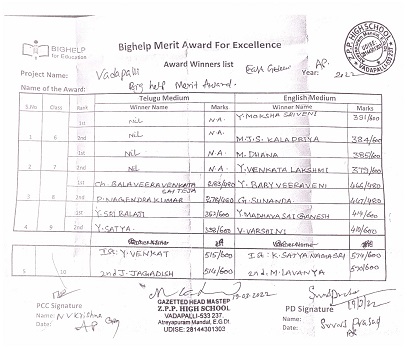 BIGHELP
for Education
Bighelp Merit Award For Excellence
Award Winners list
Z.P.P. HIGH SCHOOL
VADAPALLI-533
Project Name: Vadapalli
AP.
Year: 2022
Name of the Award: Big help Merit Award.
Telugu Medium English Medium
S.No Class Rank Winner Name Marks Winner Name Marks
1st nil N.A. Y. MOKSHA SRIVENI 391/600
1 6 2nd nil N.A. M.J.S. KALADRIYA 384/600
1st nil N.A. M. DHANA 385/600
2 7 2nd nil N.A. Y. VENKATA LAKSHMI 379/600
1st Ch. BALAVEERAVENKATA SAITEJA 283/480 Y. BABY VEERAVENI 466/480
3 8 2nd P. NAGENDRA KUMAR 278/480 G. SUNANDA 447/480
1st Y. SRI BALAJI 363/600 Y. MADHAVA SAI GANESH 419/600
4 9 2nd Y. SATYA 338/600 V. VARSAINI 410/600
1st: Y. VENKAT 515/600 1st: K. SATYA NAGASRI 574/600
5 10 2nd J. JAGADISH 514/600 2nd. M. LAVANYA 570/600
PCC Signature
Name: N V Krishna
Date:
19-08-2022
GAZETTED HEAD MASTER
Z.P.P. HIGH SCHOOL
VADAPALLI-533 237.
Atreyapuram Mandal, E.G.Dt.
UDISE: 28144301303
PD Signature
Name: Sunil Prasad
Date: